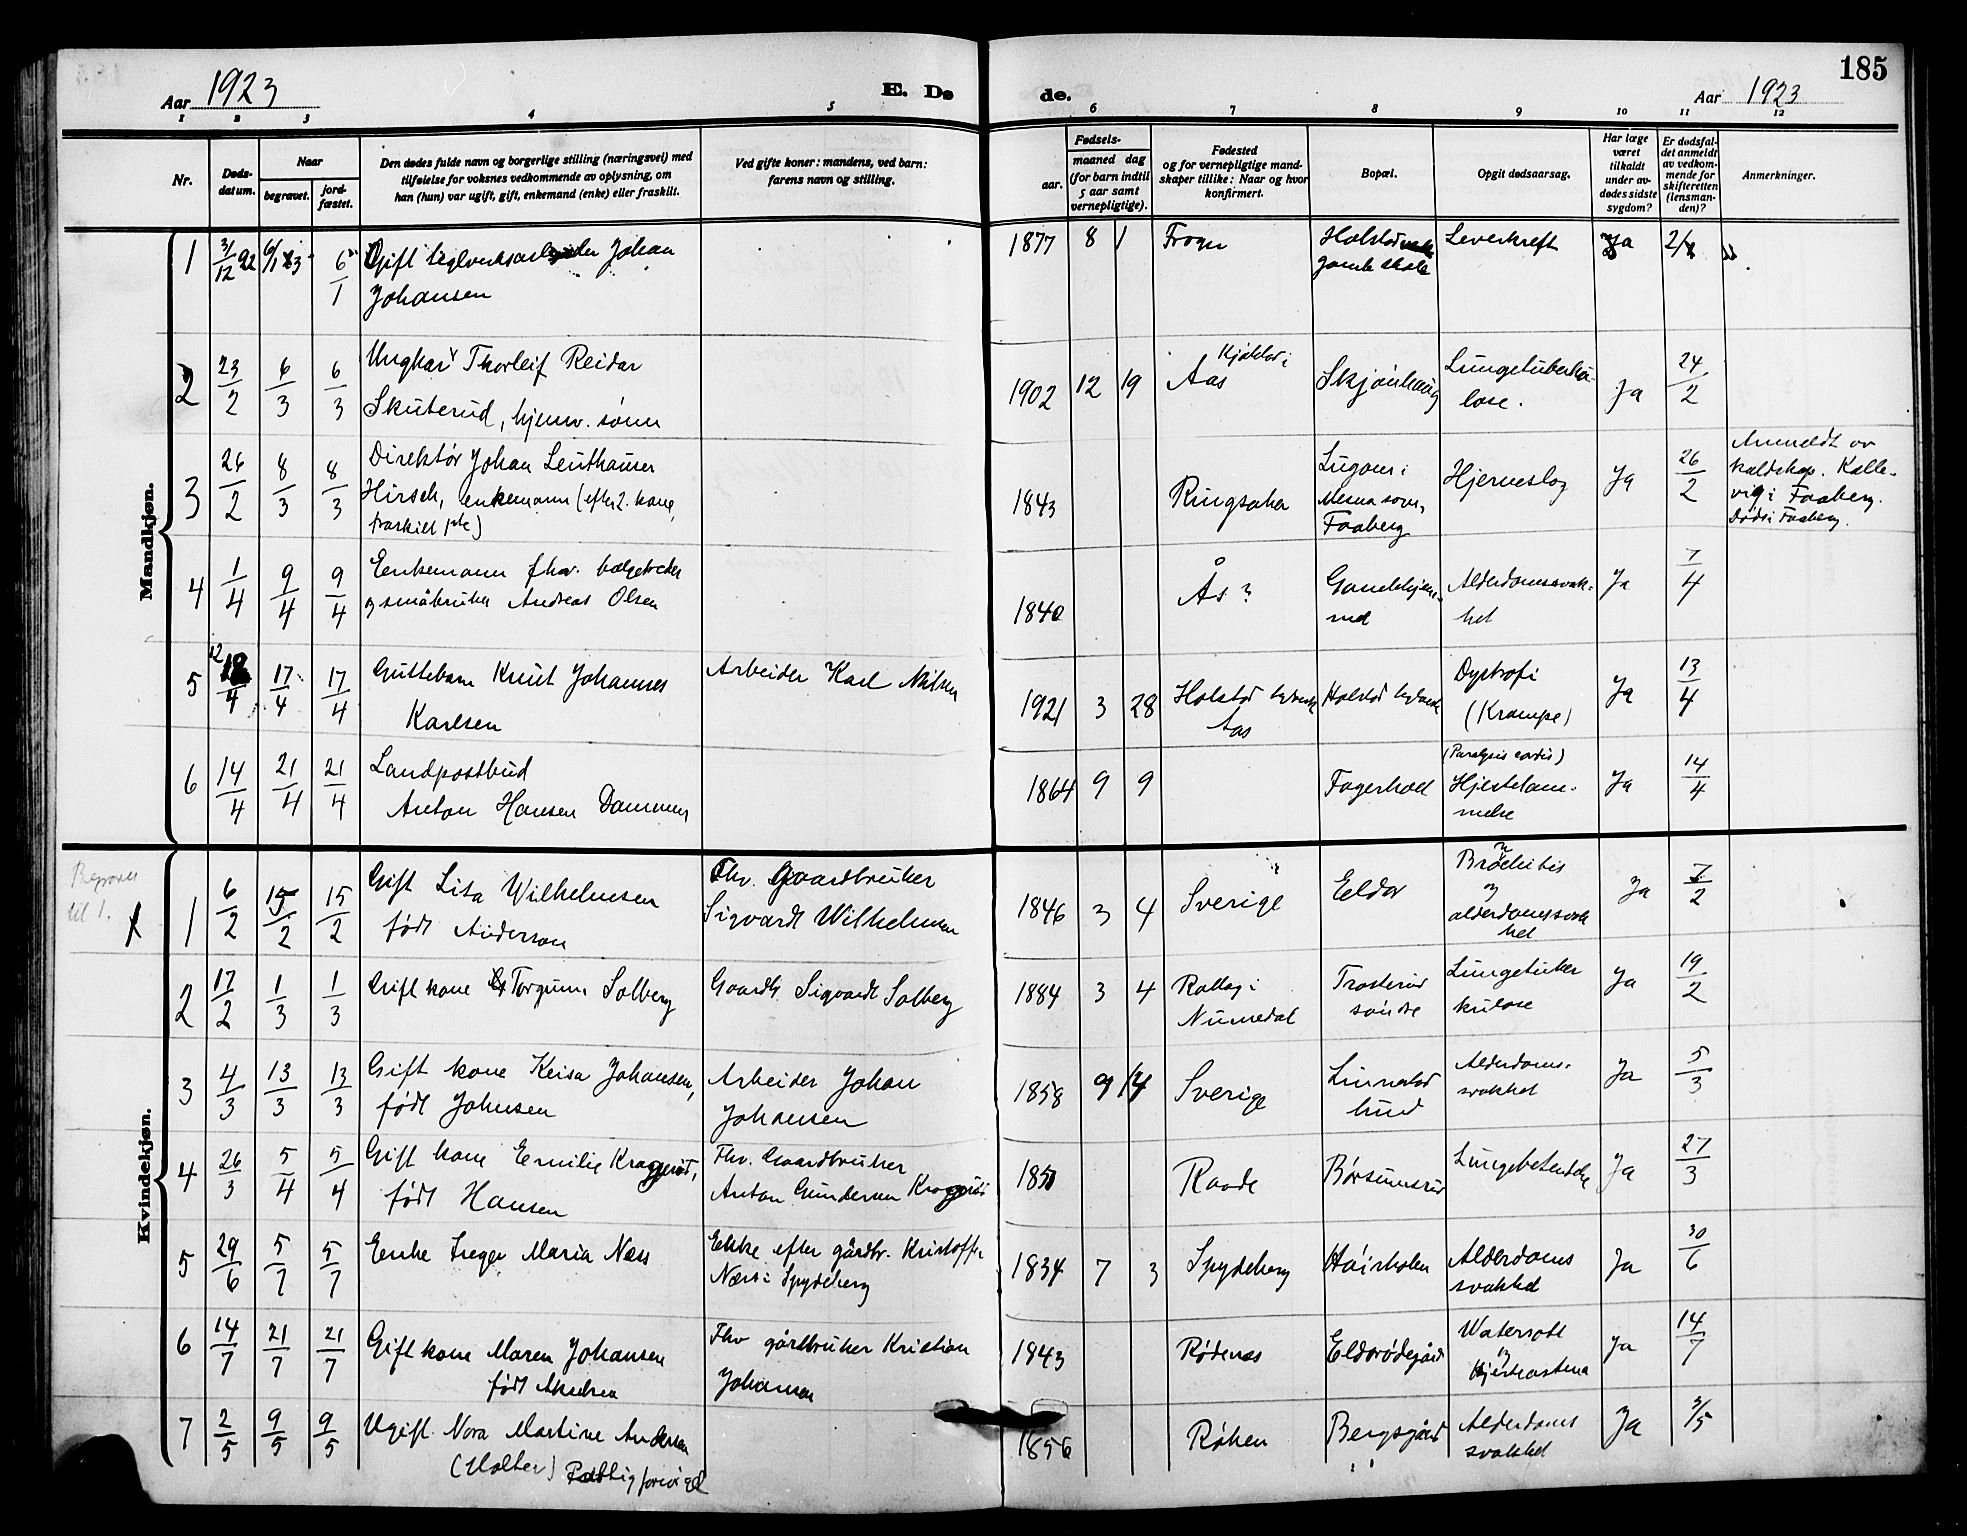 185
Aar 1923
E. Dø
de.
Aar 1923
1 2 3 4 5 6 7 8 9 10 11 12
Nr.
Døds-
datum.
Naar
begravet.
jord-
fæstet.
Den dødes fulde navn og borgerlige stilling (næringsvei) med
tilføielse for voksnes vedkommende av oplysning, om
han (hun) var ugift, gift, enkemand (enke) eller fraskilt.
Ved gifte koner: mandens, ved barn:
farens navn og stilling.
Fødsels-
aar.
maaned dag
(for barn indtil
5 aar samt
vernepligtige).
Fødested
og for vernepligtige mand-
skaper tillike: Naar og hvor
konfirmert.
Bopæl.
Opgit dødsaarsag.
Har læge
været
tilkaldt
under av-
dødes sidste
sygdom?
Er dødsfal-
det anmeldt
av vedkom-
mende for
skifteretten
(lensman-
den)?
Anmerkninger.
Mandkjøn.
1 31/12 22 6/1 23 6/1 Gift teglverksarbeider Johan
Johansen
1877 8 1 Leverkreft Ja
2 23/2 6/3 6/3 Ungkar Thorleif Reidar
Skuterud, hjemv. sønn
1902 12 19 Aas Skjønhaug Lungetuberku-
lose. Ja 24/2
3 26/2 8/3 8/3 Direktør Johan Leuthauser
Hirsch, enkemann (efter 2. kone,
fraskilt 1ste)
1843 Ringsaker
Mesna
Faaberg
Hjerneslag Ja 26/2
Anmeldt av
Faaberg.
Død i Faaberg.
4 1/4 9/4 9/4 Enkemann fhv. bælgetreder
og småbruker Andreas Olsen
1840 Ås? Alderdomssvak-
het Ja 7/4
5 12/4 17/4 17/4 Guttebarn Knut Johannes
Karlsen
Arbeider Karl Nilsen
1921 3 28 Holstad
Aas
Holstad
Dystrofi
(Krampe)
Ja 13/4
6 14/4 21/4 21/4 Landpostbud
Anton Hansen Dammen
1864 9 9 Fagerholt
(Paralysis cordis)
Hjertelam-
melse
Ja 14/4
Kvindekjøn.
til 1.
1 6/2 15/2 15/2 Gift Lisa Wilhelmsen
født Anderson
Fhv. Gaardbruker
Sigvardt Wilhelmsen
1846 3 4 Sverige Eldor
alderdomssvak
het
Ja 7/2
2 17/2 1/3 1/3 Gift kone Torgunn Solberg
Gaardb. Sigvardt Solberg
1884 3 4 Rollag i
Numedal
Trosterud
søndre
Lungetuber
kulose
Ja 19/2
3 4/3 13/3 13/3 Gift kone Keisa Johansen,
født Johnsen
Arbeider Johan
Johansen
1858 9 14 Sverige
Alderdoms-
svakhet
Ja 5/3
4 26/3 5/4 5/4 Gift kone Emilie Kragerød,
født Hansen
Fhv. Gaardbruker
Anton Gundersen Kragerød
Raade Børsumsrud Lungebetendelse Ja 27/3
5 29/6 5/7 5/7 Enke Inger Maria Næss
Enke efter gårdbr. Kristoffer
Næss i Spydeberg
1834 7 3 Spydeberg Alderdoms
svakhet
Ja 30/6
6 14/7 21/7 21/7 Gift kone Maren Johansen
født Akselsen
Fhv gårdbruker Kristian
Johansen
1843 Rødenes
Watersott
Ja 14/7
7 2/5 9/5 9/5 Ugift. Nora Martine Andersen
(Holter)
1856 Røken Alderdoms
svakhet
Ja 3/5